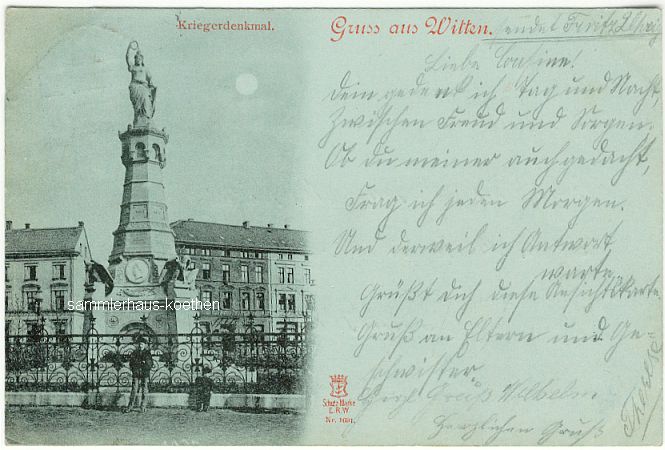 Kriegerdenkmal.
Gruss aus Witten.
sendet Fritz
Liebe Cousine!
Dein gedenk ich Tag und Nacht,
Zwischen Freud und Sorgen.
Ob du meiner auch gedacht,
Frag ich jeden Morgen.
Und derweil ich Antwort
warte,
Grüßt dich diese Ansichtskarte
Gruß an Eltern und Ge-
schwister
Wilhelm
Herzlichen Gruß
sammlerhaus-koethen
Schutz-Marke
E.R.W.